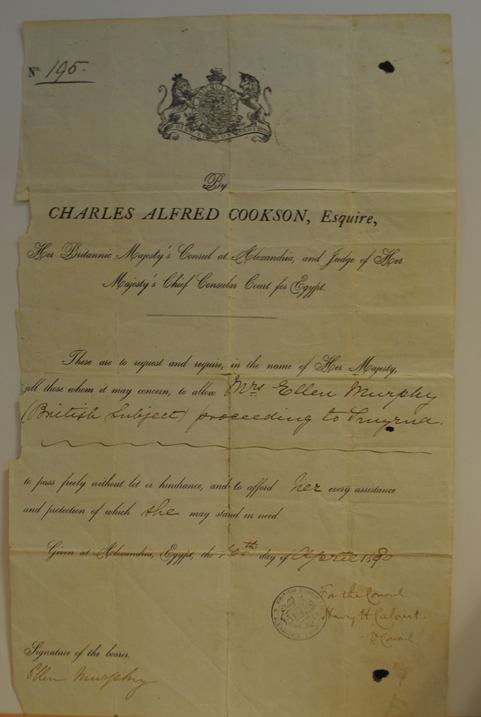 No 195.
By
CHARLES ALFRED COOKSON, Esquire,
Her Britannic Majesty's Consul at Alexandria, and Judge of Her
Majesty's Chief Consular Court for Egypt.
These are to request and require, in the name of Her Majesty,
all those whom it may concern, to allow Mrs Ellen Murphy
(British Subject) proceeding to Smyrna.
to pass freely without let or hindrance, and to afford her every assistance
and protection of which she may stand in need.
Given at Alexandria, Egypt, the day of April 1880
For the Consul
Henry H Calvert.
V Consul
Signature of the bearer.
Ellen Murphy